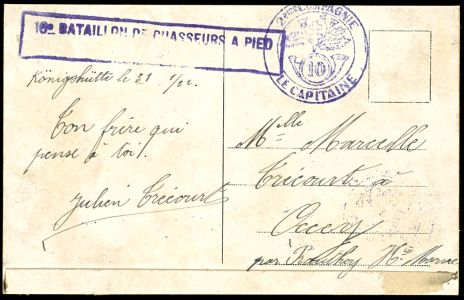 16e BATAILLON DE CHASSEURS A PIED
2eme COMPAGNIE
10
LE CAPITAINE
Königshütte le 21 1/22.
Ton frère qui
pense à toi!
Julien Trécourt
Mlle Marcelle
Trécourt à
par Hte Marne